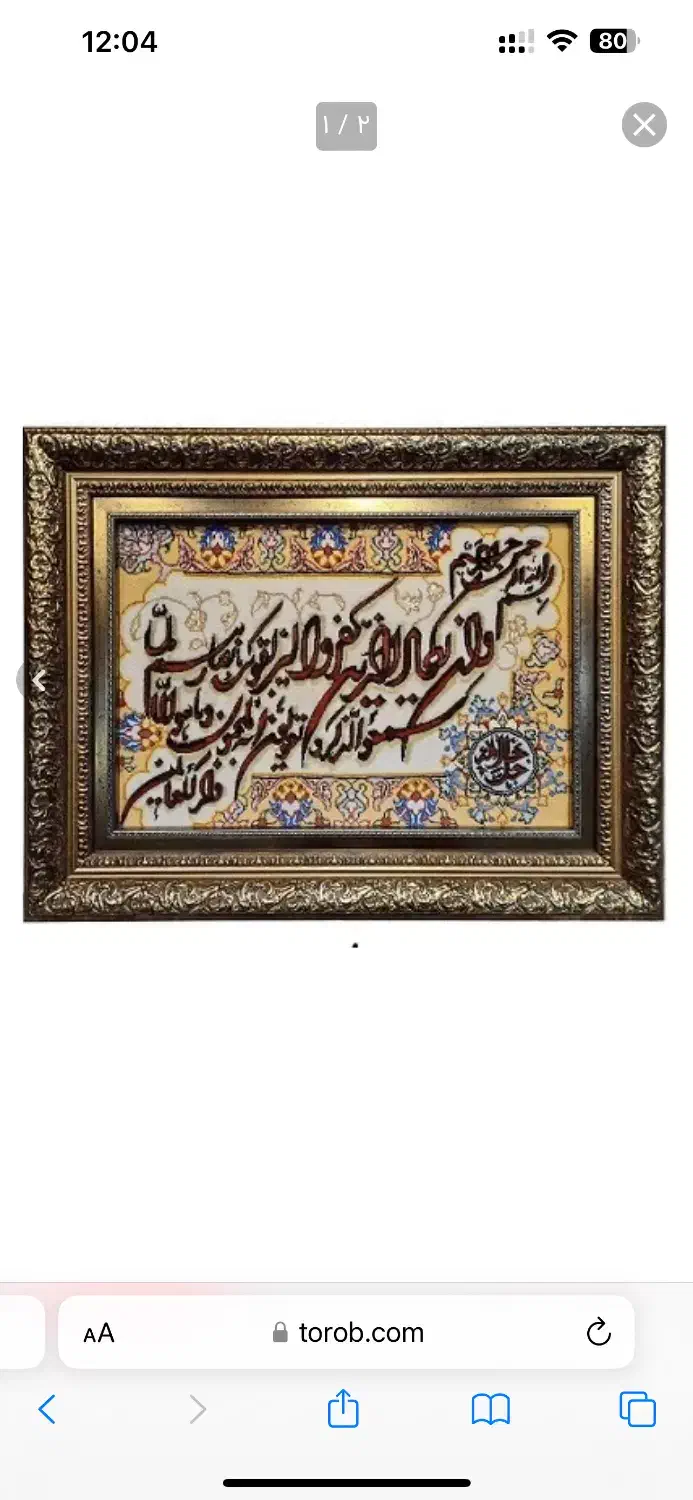 12:04
80
۱ / ۲
بسم الله الرحمن الرحیم
وان یکاد الذین کفروا لیزلقونک بابصارهم لما
سمعوا الذکر و یقولون انه لمجنون وما هو الا
ذکر للعالمین
جل جلاله
AA
torob.com